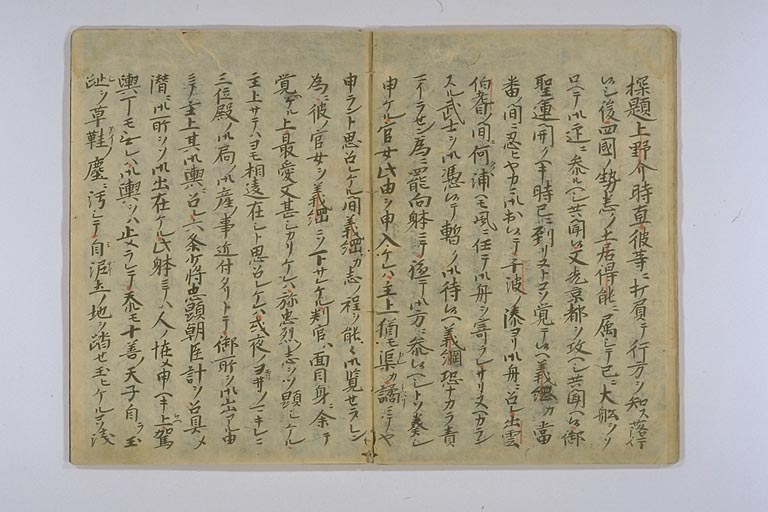 探題上野介時直彼等ニ打負テ行方ヲ知ス落テ
ヒシ後四國ノ勢悉ク土居得能ニ属シテ已ニ大船ヲソ
ロヘテ此近ニ参ルヘシト共聞ヘ又先京都ヲ攻ヘシ共聞ヘ候御
聖運開ヘキ時已ニ到リヌトコソ覚テ候ヘ義綱カ當
番ノ間ニ忍ヒヤカニ御出有テ千波ノ湊ヨリ御舟ニ召レ出雲
伯耆ノ間何レノ浦ヘモ風ニ任テ御舟ヲ寄ラレサリヌヘカラン
スル武士ヲ御憑候テ暫ク御待候ヘ義綱恐ナカラ責
マイラセン為ニ罷向躰ニテ頓テ御方ニ参候ヘシトソ奏シ
申ケル官女此由ヲ申入ケレハ主上猶モ渠カ譌ニテヤ
申ラント思召レケル間義綱カ志ノ程ヲ能々御覧セラレン
為ニ彼ノ官女ヲ義綱ニソ下サレケル判官ハ面目身ニ余テ
覚ケル上最愛又甚シカリケレハ弥忠烈ノ志ヲソ顕シケル
主上サテハヨモ相違在シト思召レケレハ或夜ノヨヒノマキレニ
三位殿ノ御局ノ御産ノ事近付タリトテ御所ヲ御出アル由
ニテ主上其御輿ニ召レ六条少将忠顕朝臣計ヲ召具メ
潜ニ御所ヲソ御出在ケル此躰ニテハ人ノ怪メ申ヘキ上駕
輿丁モ無レハ御輿ヲハ止メラレテ忝モ十善ノ天子自ラ玉
趾ヲ草鞋ノ塵ニ汚シテ自泥土ノ地ヲ踏セ玉ヒケルコソ浅